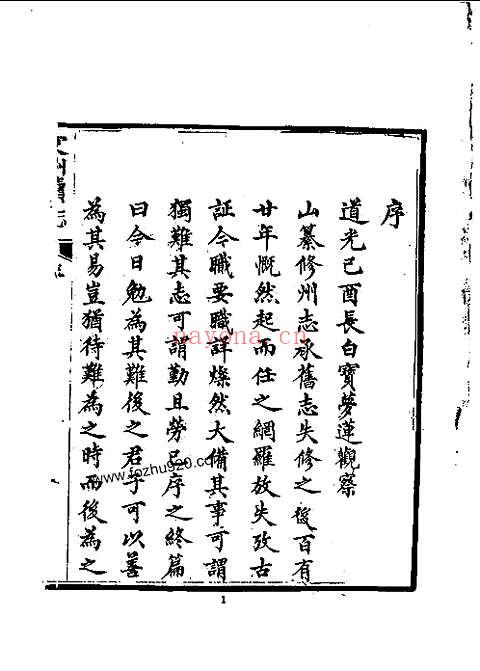 序
道光己酉長白寶夢蓮觀察
山纂修州志承舊志失修之後百有
廿年慨然起而任之網羅放失攷古
証今職要職詳燦然大備其事可謂
獨難其志可謂勤且勞已序之終篇
曰今日勉為其難後之君子可以善
為其易豈猶待難為之時而後為之
州續志
序
nayona.cn
www.fozhu920.com
1